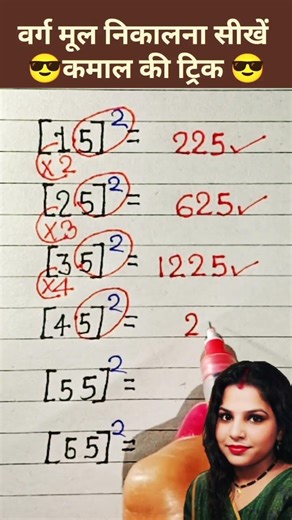 वर्ग मूल निकालना सीखें
😎कमाल की ट्रिक 😎
[15]²= 225✓
×2
[25]²= 625✓
×3
[35]²= 1225✓
×4
[45]²= 2
[55]²=
[65]²=